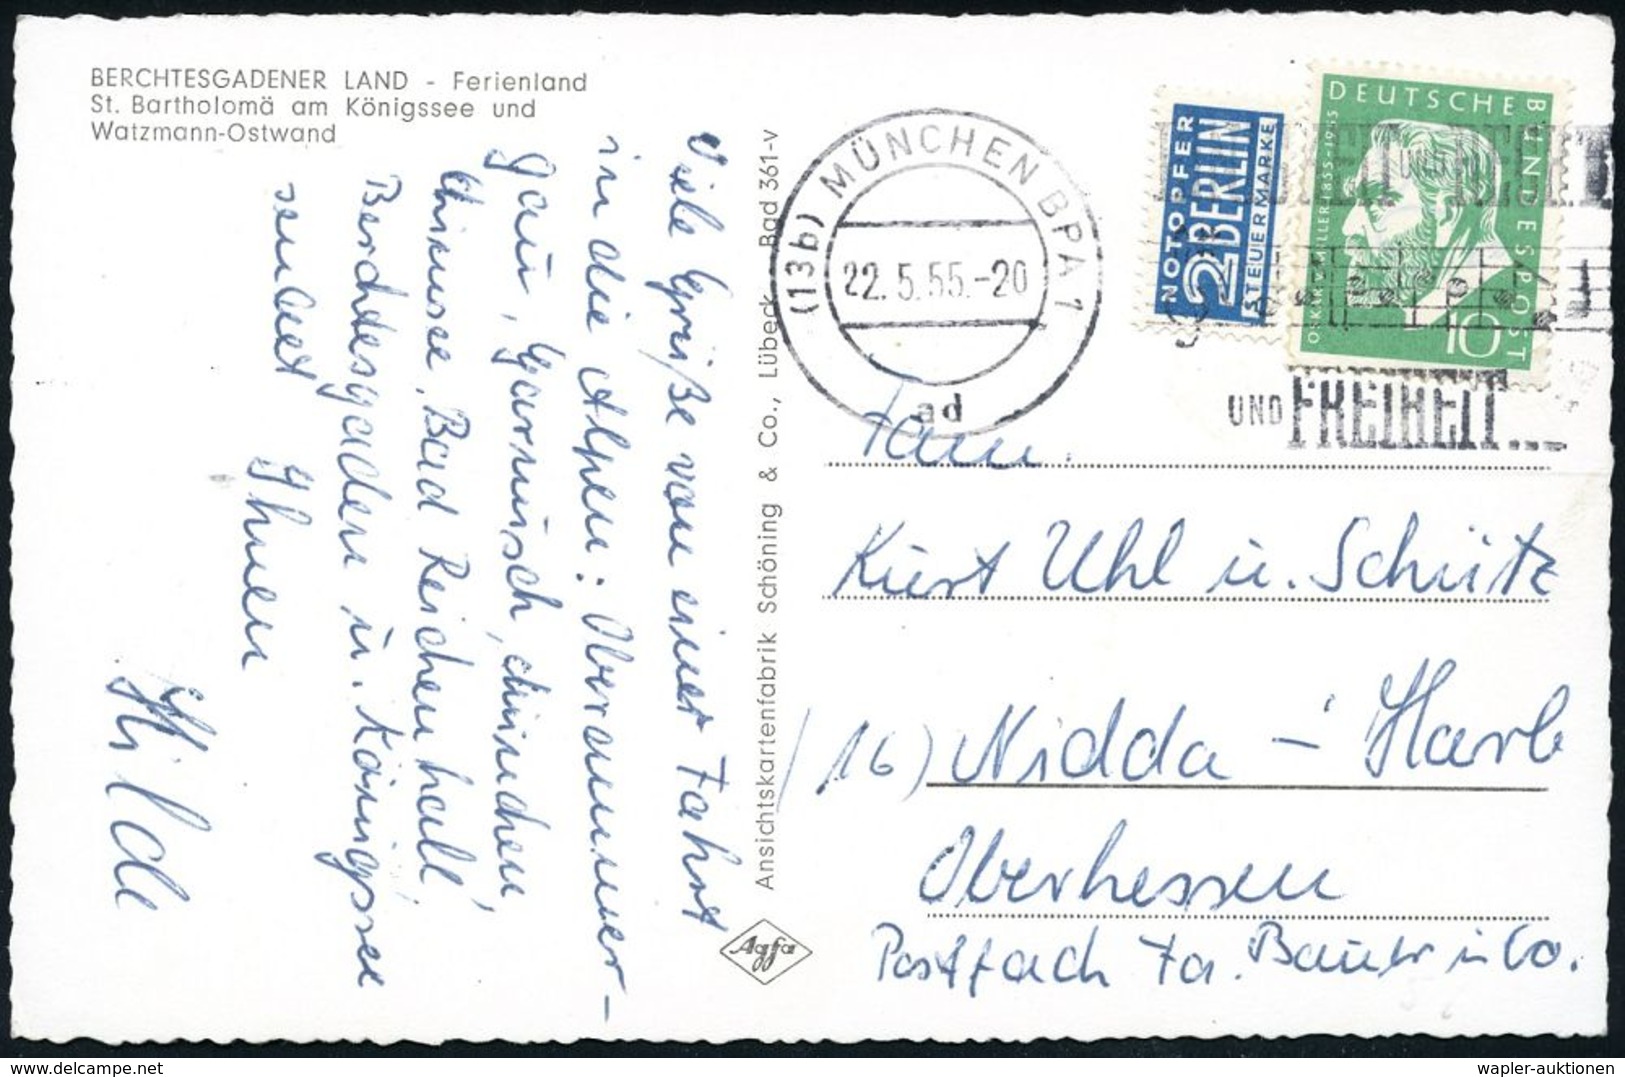 BERCHTESGADENER LAND - Ferienland
St. Bartholomä am Königssee und
Watzmann-Ostwand
Viele Grüße von einer Fahrt
in die Alpen: Oberammer-
gau, Garmisch,
Chimsee, Bad Reichenhall,
Berchtesgaden u. Königssee
sendet
Ihnen
Hilde
Ansichtskartenfabrik Schöning & Co., Lübeck Bad 361-v
Agfa
(13b) MÜNCHEN BPA 1
22.5.55.-20
ad
NOTOPFER
2 BERLIN
STEUERMARKE
DEUTSCHE BUNDESPOST
OSKAR V. MILLER 1855-1955
10
UND
UND FREIHEIT...
Fam.
Kurt Uhl u. Schütz
(16) Nidda - Harb
Oberhessen
Postfach Fa. Bauer u Co.
delcampe.net
wapler-auktionen